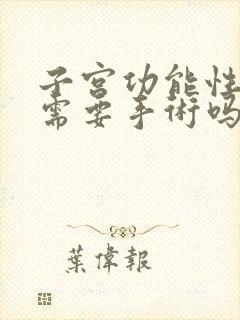 子宫功能性
需要手術吗
葉偉報